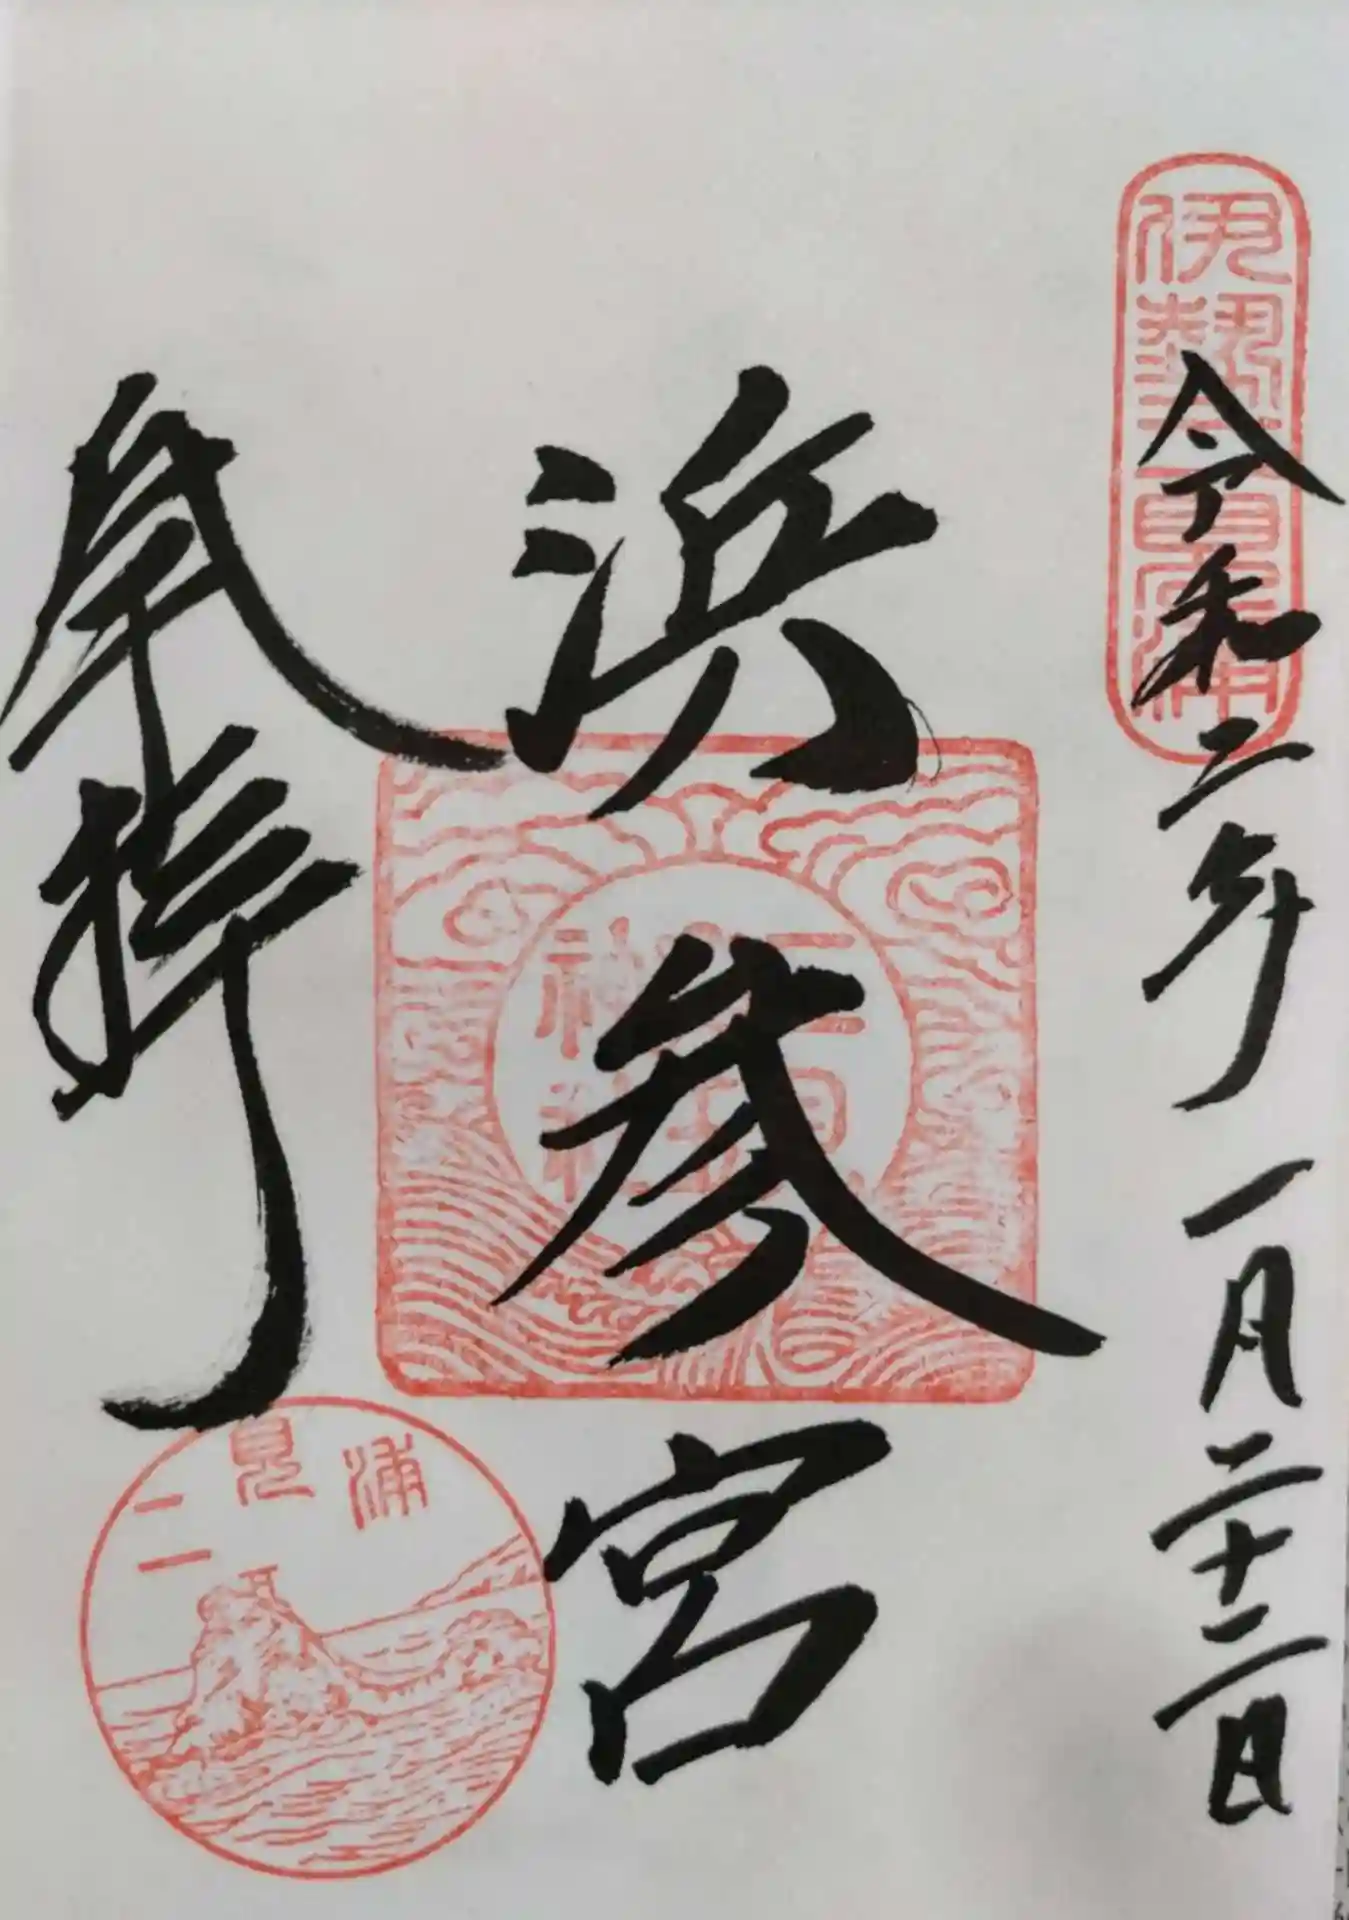 令和二年一月二十二日
伊勢二見浦
浜参宮
二見興玉神社
奉拝
二見浦